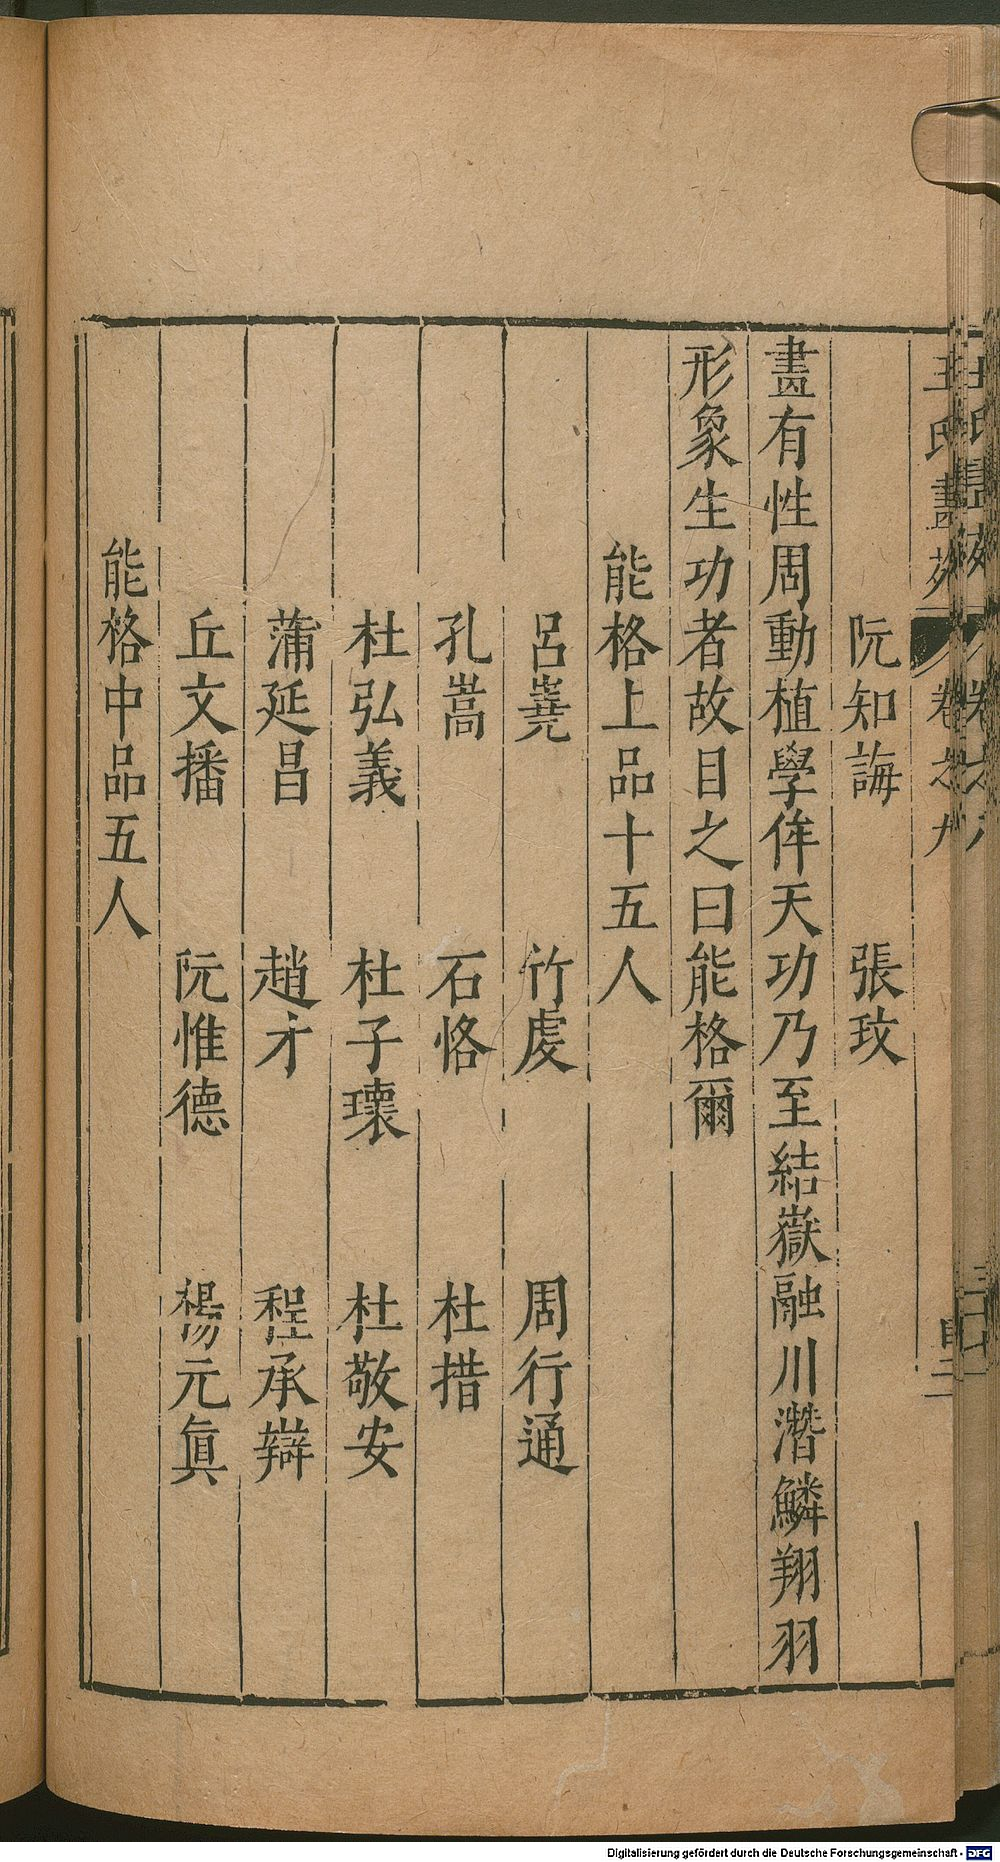 王氏畫苑 卷之九 目二
阮知誨 張玫
畫有性周動植學侔天功乃至結嶽融川潛鱗翔羽
形象生功者故目之曰能格爾
能格上品十五人
呂嶤 竹虔 周行通
孔嵩 石恪 杜措
杜弘義 杜子瓌 杜敬安
蒲延昌 趙才 程承辯
丘文播 阮惟德 楊元眞
能格中品五人
Digitalisierung gefördert durch die Deutsche Forschungsgemeinschaft - DFG